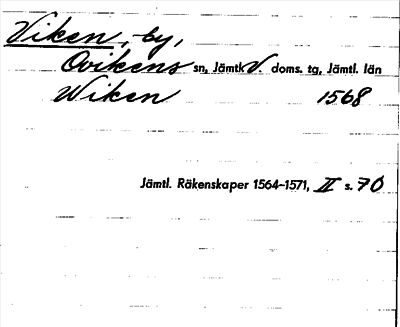 Viken, -by,
Ovikens sn, Jämtl. V. doms. tg, Jämtl. län
Wiken 1568
Jämtl. Räkenskaper 1564-1571, II s. 70